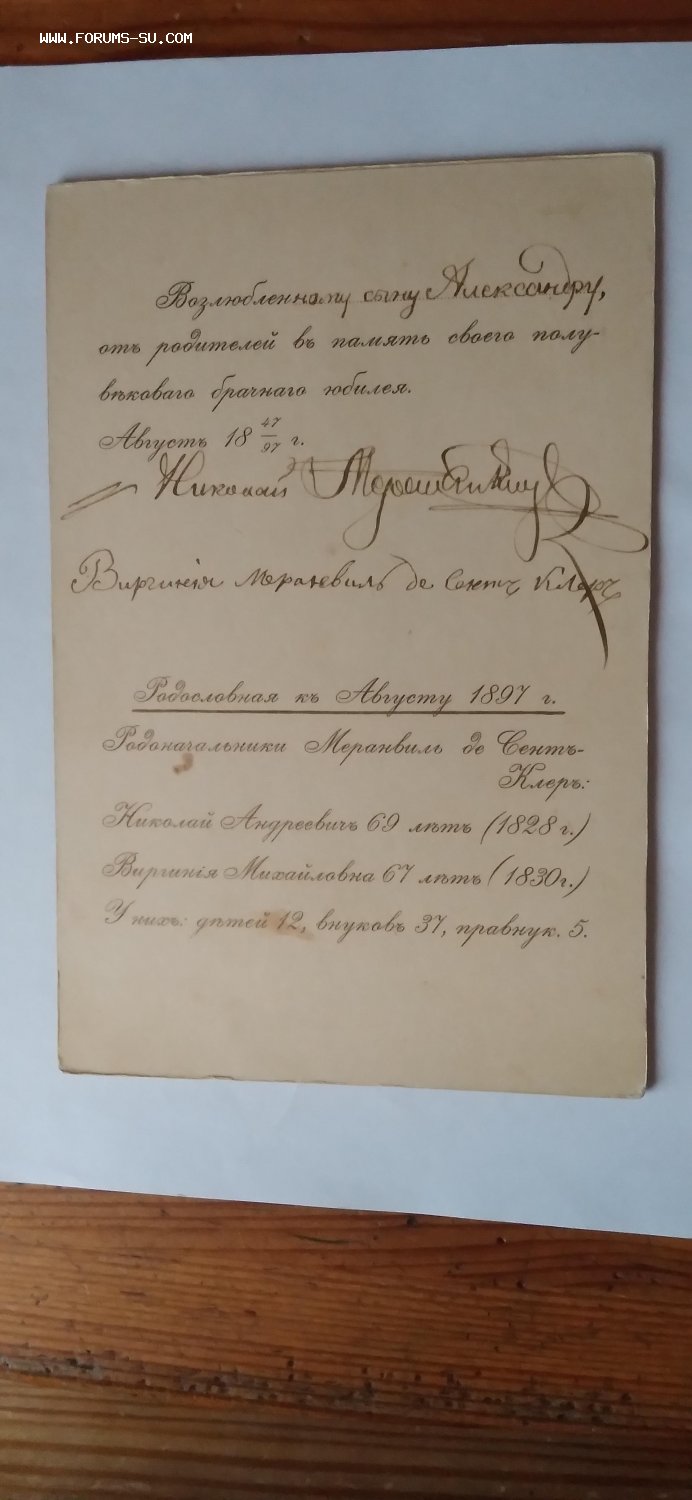 WWW.FORUMS-SU.COM
Возлюбленному сыну Александру,
отъ родителей въ память своего полу-
вѣковаго брачнаго юбилея.
Августъ 18 47/97 г.
Николай
Виргинія Меранвиль де Сентъ Клеръ
Родословная къ Августу 1897 г.
Родоначальники Меранвиль де Сентъ-
Клеръ:
Николай Андреевичъ 69 лѣтъ (1828 г.)
Виргинія Михайловна 67 лѣтъ (1830 г.)
У нихъ: дѣтей 12, внуковъ 37, правнук. 5.